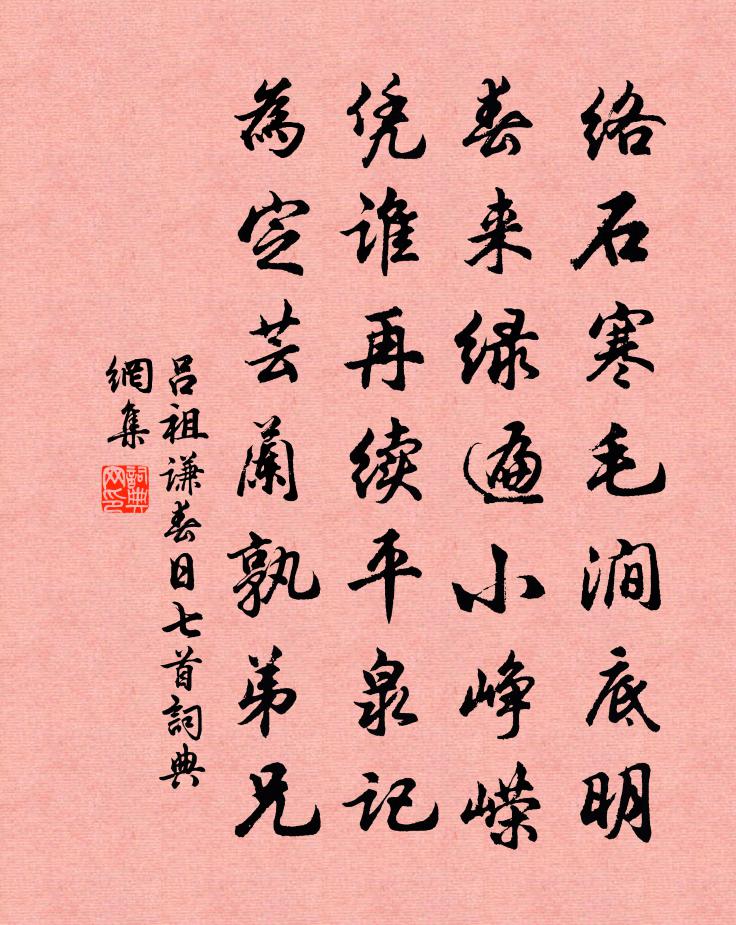 络石寒毛涧底明
春来绿遍小峥嵘
凭谁再续平泉记
為定芸蘭孰弟兄
吕祖謙春日七首詞典
網集
詞典
网印